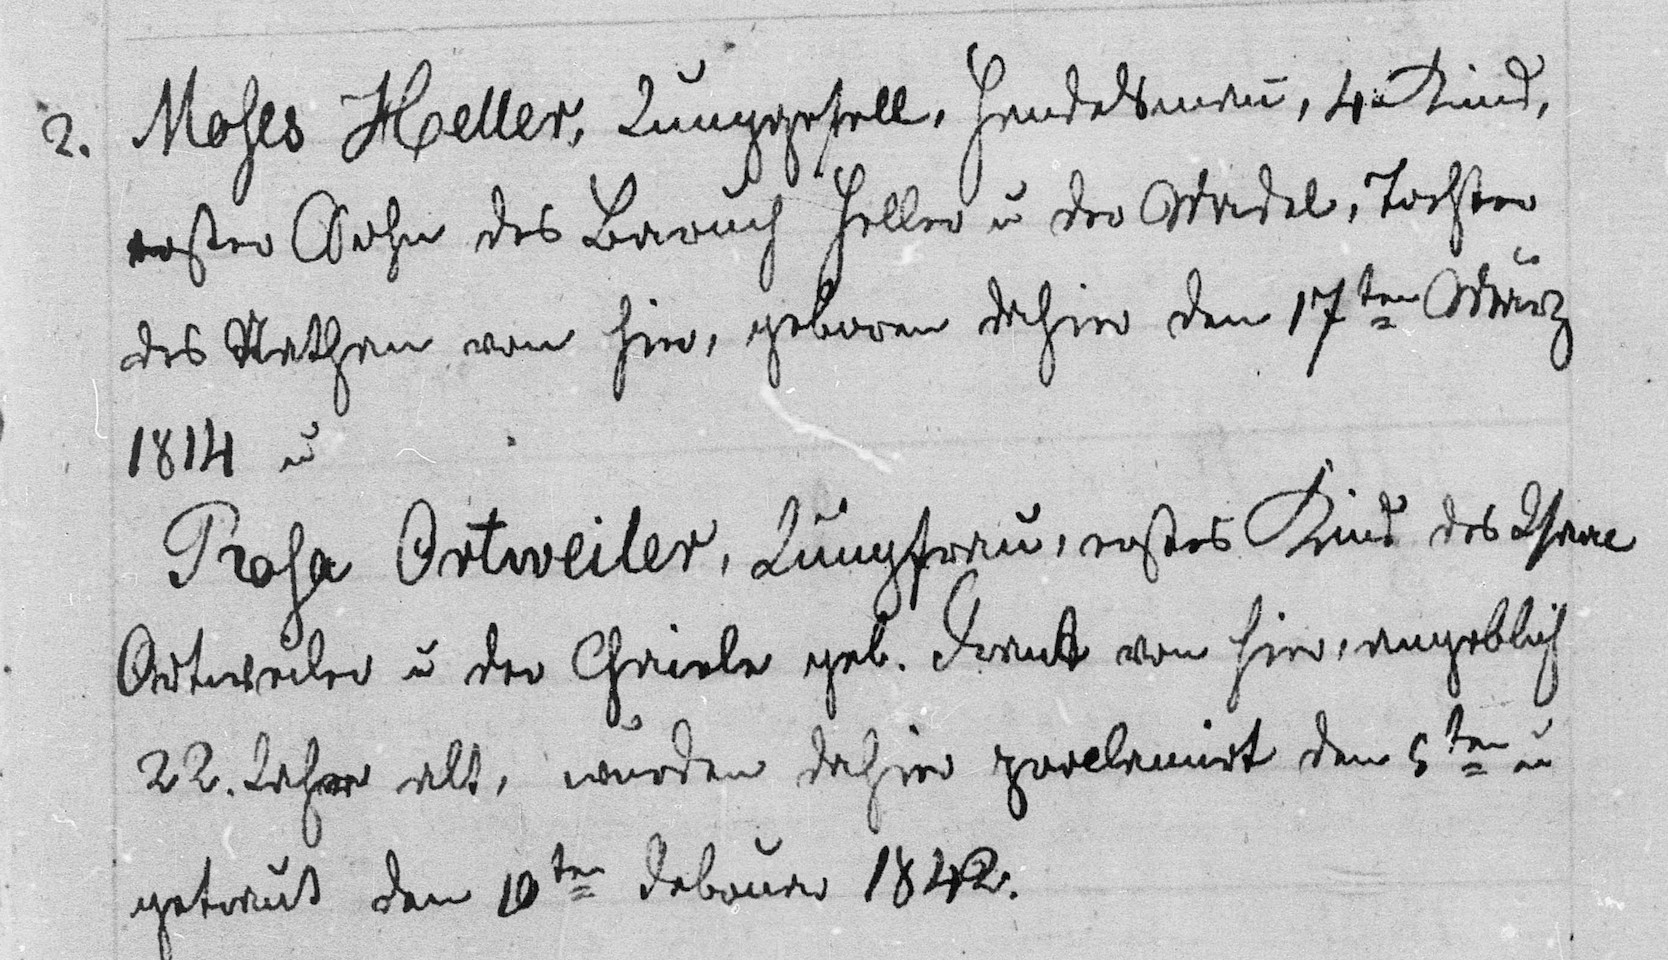 2. Moses Heller, Junggesell, Handelsmañ, 4. Kind,
erster Sohn des Baruch Heller u der Madel, Tochter
des Nathan von hier, geboren dahier den 17ten März
1814 u
Rosa Ortweiler, Jungfrau, erstes Kind des Isaac
Ortweiler u der Chaiele geb. von hier, angeblich
22. Jahr alt, wurden dahier proclamirt den 5ten u
getraut den 10ten Februar 1842.